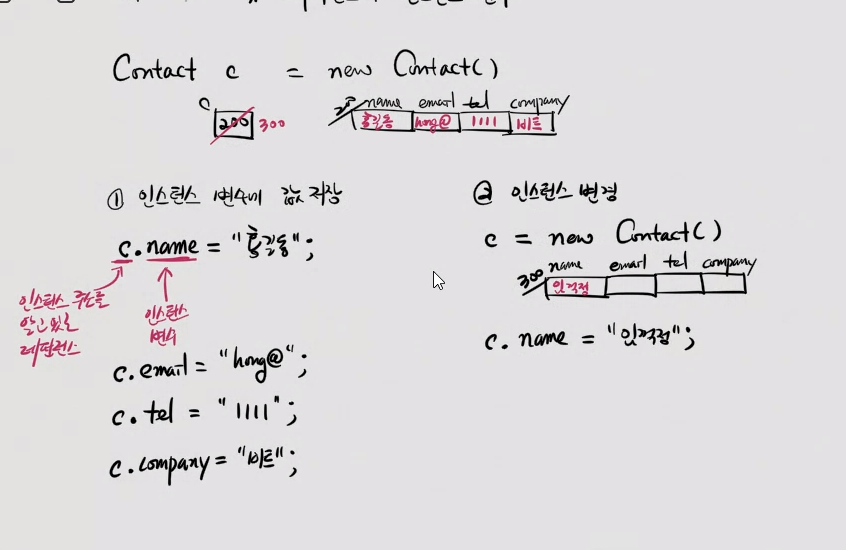 Contact c = new Contact()
c 200 300
200 name email tel company
홍길동 hong@ 1111 비트
① 인스턴스 변수에 값 저장
c.name = "홍길동";
인스턴스 주소를
알고 있는
레퍼런스
인스턴스
변수
c.email = "hong@";
c.tel = "1111";
c.company = "비트";
② 인스턴스 변경
c = new Contact()
300 name email tel company
임꺽정
c.name = "임꺽정";